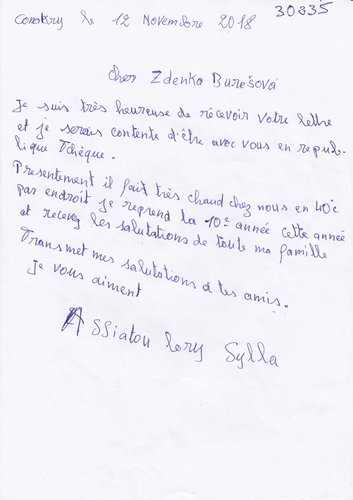 30335
Conakry le 12 Novembre 2018
Cher Zdenka Burešová
Je suis très heureuse de récevoir votre lettre
et je serais contente d'être avec vous en repub-
lique Tchèque.
Presentement il fait très chaud chez nous en 40°c
par endroit je reprend la 10e année cette année
et recevez les salutations de toute ma famille
Transmet mes salutations à tes amis.
Je vous aiment
Assiatou Sylla